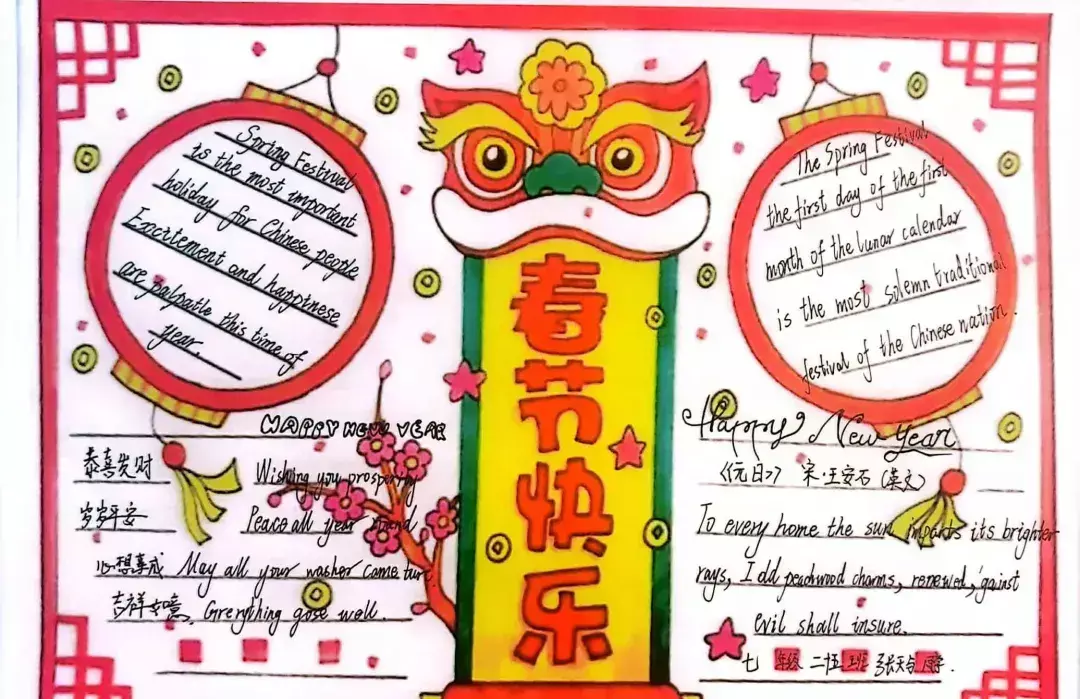 Spring Festival
is the most important
holiday for Chinese people
Excitement and happinese
are palpable this time of
year.
春节快乐
The Spring Festival
the first day of the first
month of the lunar calendar
is the most solemn traditional
festival of the Chinese nation.
HAPPY NEW YEAR
恭喜发财 Wishing you prosperity
岁岁平安 Peace all year round
心想事成 May all your washer came ture
吉祥 Grerything gose well.
Happy New Year
《元日》 宋·王安石(英文)
To every home the sun imparts its brighter
rays, I dd peachwood charms, renewed,'gainst
evil shall insure.
七年级二五班